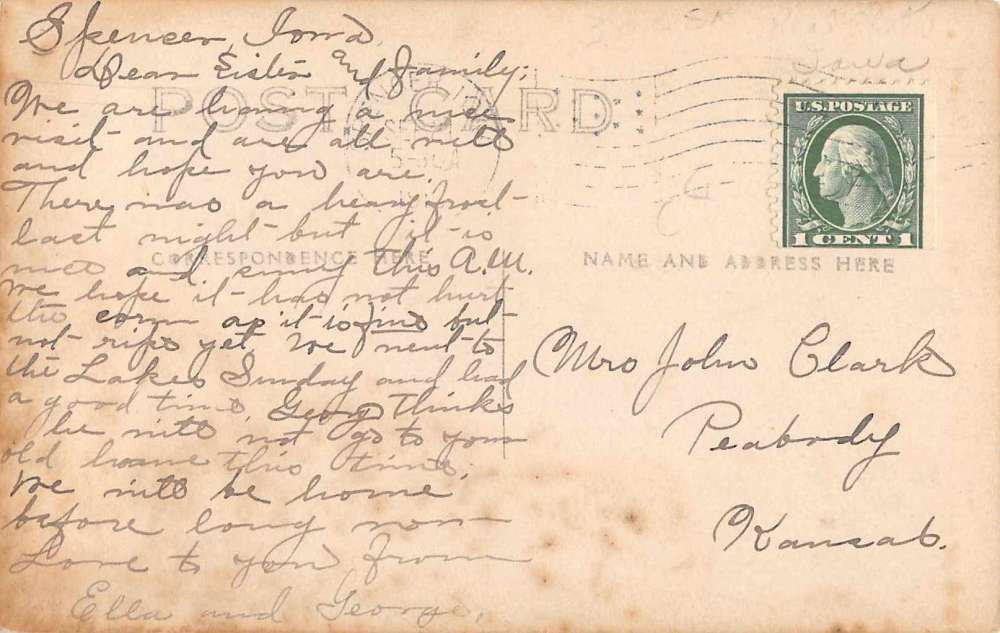 Spencer, Iowa.
Dear Sister and family;
We are having a nice
visit and are all well
and hope you are.
There was a heavy frost
last night but it is
nice and sunny this A.M.
we hope it has not hurt
the corn as it is fine but
not ripe yet We went to
the Lakes Sunday and had
a good time Georg thinks
he will not go to your
old home this time.
We will be home
before long now
Love to you from
Ella and George.
POST CARD
CORRESPONDENCE HERE
Iowa
U.S. POSTAGE
1 CENT 1
NAME AND ADDRESS HERE
Mrs John Clark
Peabody
Kansas.